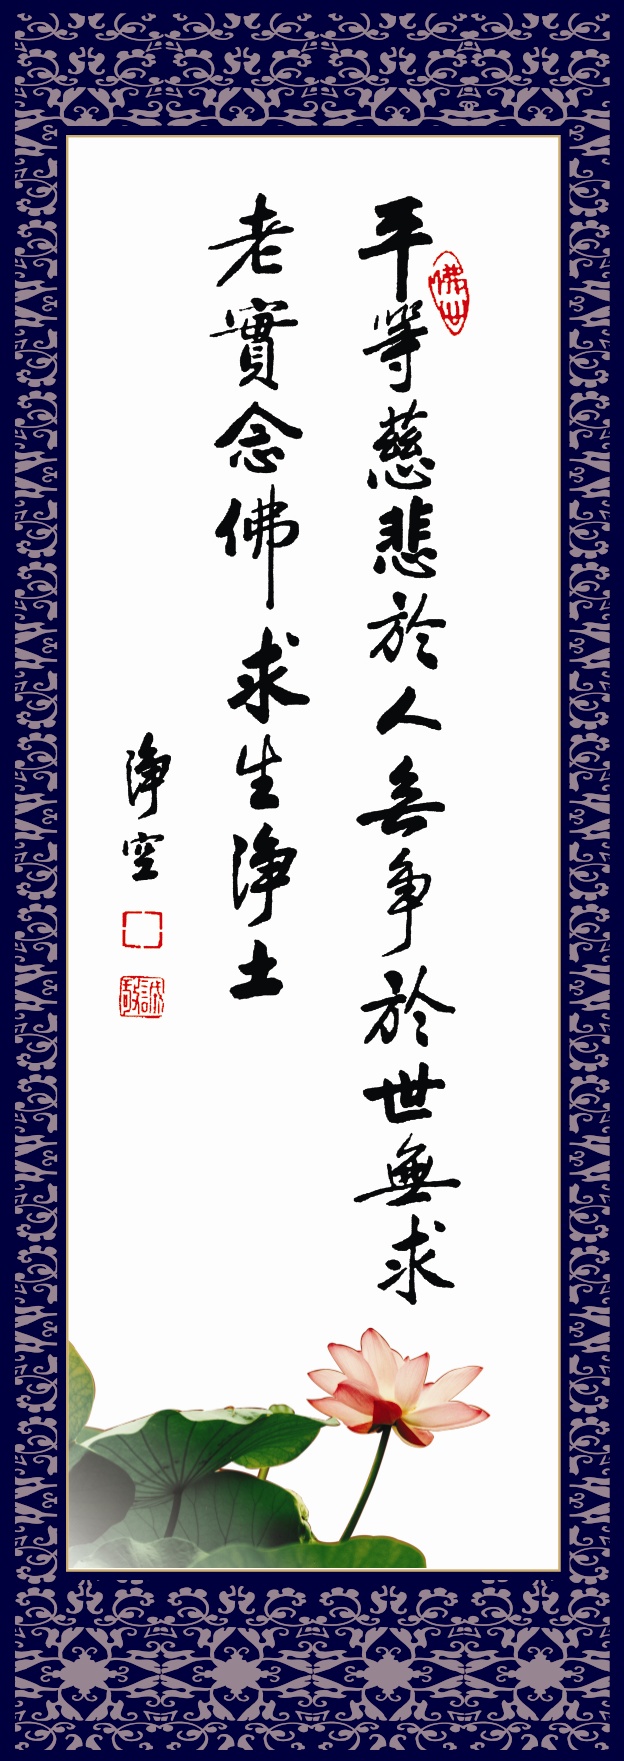 平等慈悲於人無争於世無求
老實念佛求生淨土
淨空
佛世
誠敬